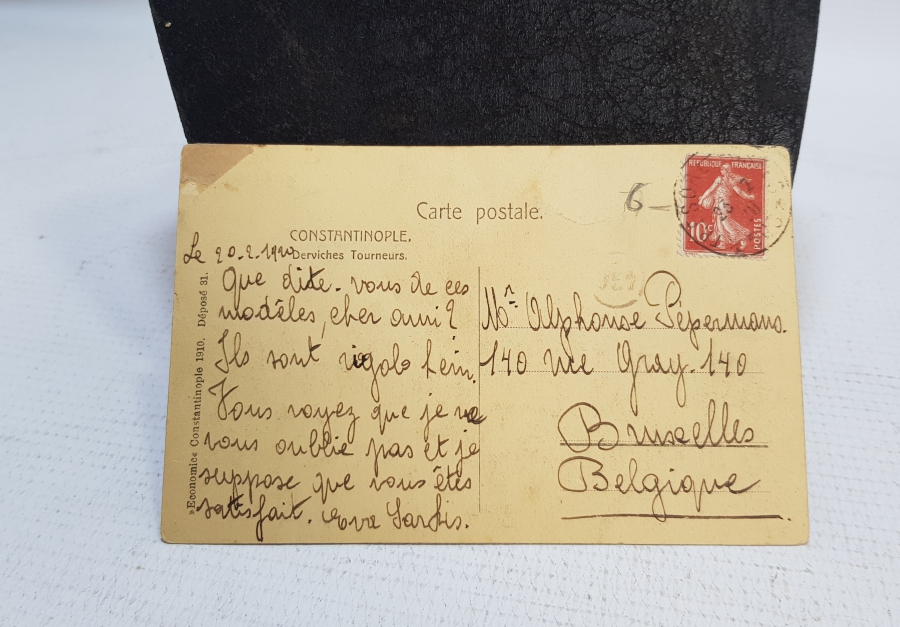 REPUBLIQUE FRANÇAISE
10c
POSTES
6-
Carte postale.
CONSTANTINOPLE.
Derviches Tourneurs.
»Economic« Constantinople 1910. Déposé 31.
Le 20-2-1920
Que dite-vous de ces
modèles, cher ami?
Ils sont rigolo hein.
Vous voyez que je ne
vous oublie pas et je
suppose que vous êtes
satisfait. Eva Sarkis.
Mr. Alphonse Pépermans.
140 rue Gray. 140
Bruxelles
Belgique